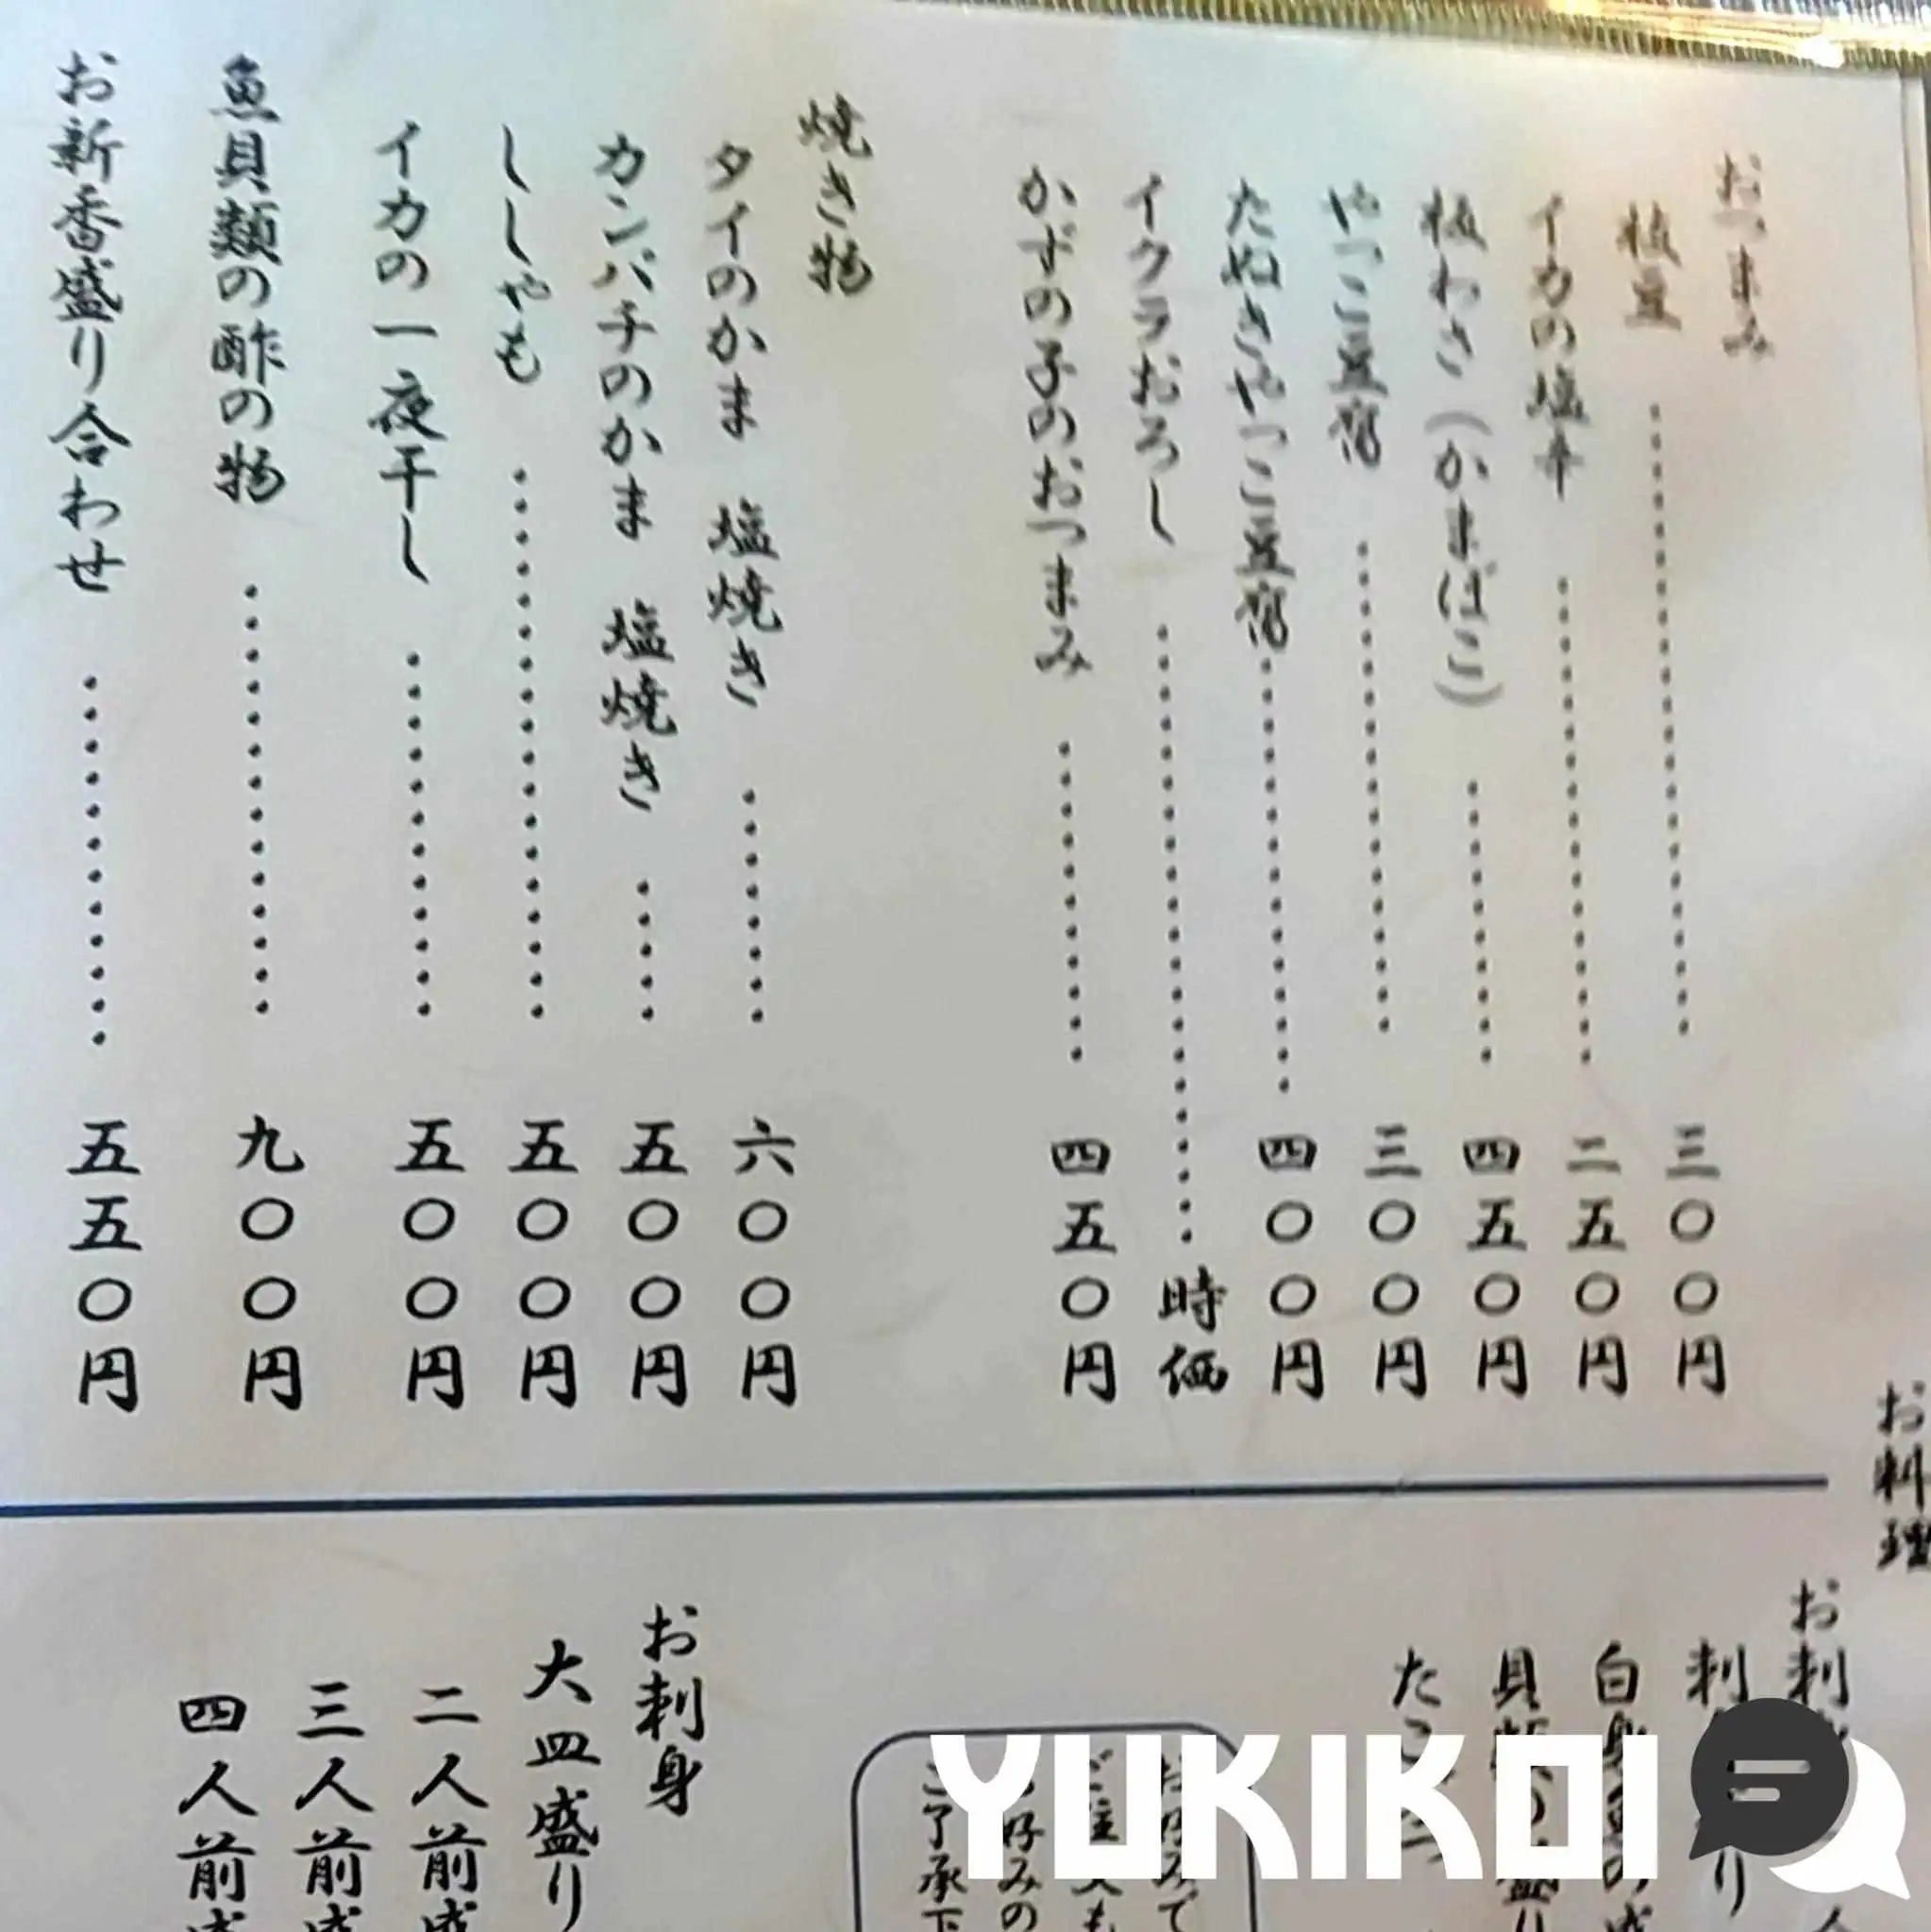 おつまみ
枝豆 ………… 三〇〇円
イカの塩辛 ………… 二五〇円
板わさ（かまぼこ） ………… 四五〇円
やっこ豆腐 ………… 三〇〇円
たぬきやっこ豆腐 ………… 四〇〇円
イクラおろし ………… 時価
かずの子のおつまみ ………… 四五〇円
焼き物
タイのかま 塩焼き ………… 六〇〇円
カンパチのかま 塩焼き ………… 五〇〇円
ししゃも ………… 五〇〇円
イカの一夜干し ………… 五〇〇円
魚貝類の酢の物 ………… 九〇〇円
お新香盛り合わせ ………… 五五〇円
お料理
お刺身
大皿盛り
二人前盛
三人前盛
四人前盛
YUKIKOI